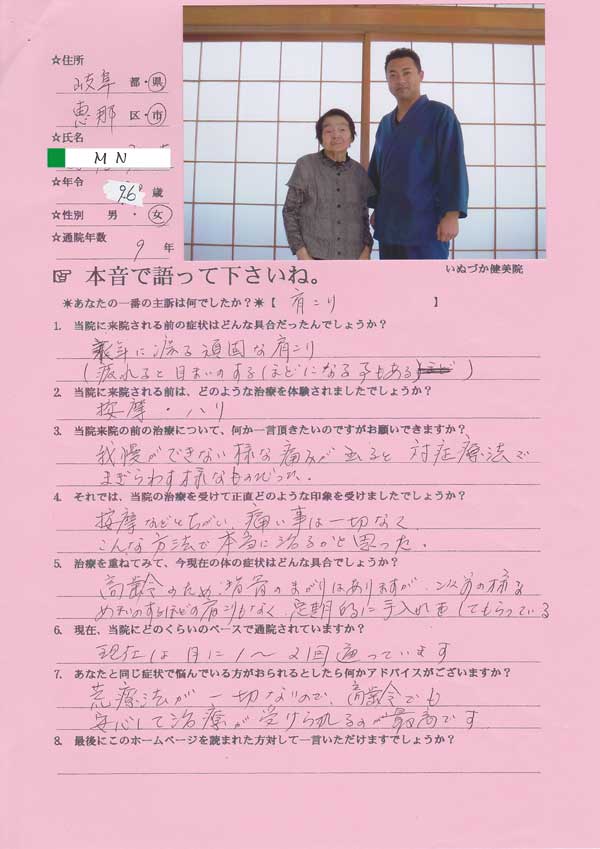 ☆住所
岐阜 都・県
恵那 区・市
☆氏名
M N
☆年令
96 歳
☆性別 男・女
☆通院年数
9 年
いぬづか健美院
本音で語って下さいね。
✳あなたの一番の主訴は何でしたか？✳【 肩こり 】
1. 当院に来院される前の症状はどんな具合だったんでしょうか？
年に渡る頑固な肩こり
(疲れると目まいのするほどになる事もある)
2. 当院に来院される前は、どのような治療を体験されましたでしょうか？
按摩・ハリ
3. 当院来院の前の治療について、何か一言頂きたいのですがお願いできますか？
我慢ができない様な痛みが出ると対症療法で
まぎらわす様なものだった。
4. それでは、当院の治療を受けて正直どのような印象を受けましたでしょうか？
按摩などとちがい、痛い事は一切なく
こんな方法で本当に治るかと思った。
5. 治療を重ねてみて、今現在の体の症状はどんな具合でしょうか？
高齢のため背骨のまがりはありますが、以前の様な
めまいのするほどの肩こりもなく、定期的に手入れをしてもらっている
6. 現在、当院にどのくらいのペースで通院されていますか？
現在は月に1〜2回通っています
7. あなたと同じ症状で悩んでいる方がおられるとしたら何かアドバイスがございますか？
荒療法が一切ないので、高齢でも
安心して治療が受けられるのが最高です
8. 最後にこのホームページを読まれた方対して一言いただけますでしょうか？